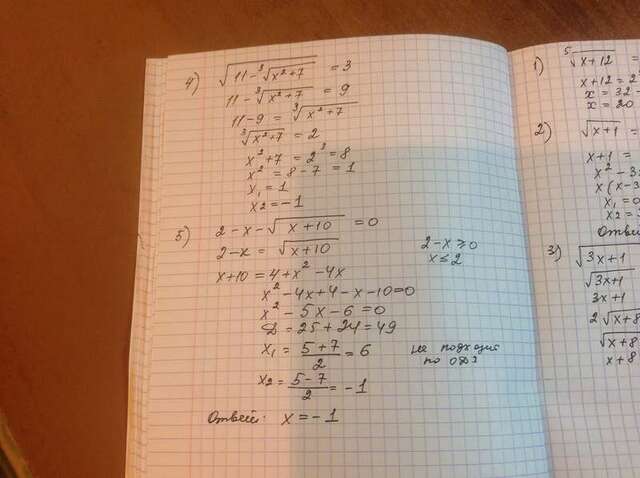 4) √(11-³√(x²+7)) = 3
11-³√(x²+7) = 9
11-9 = ³√(x²+7)
³√(x²+7) = 2
x²+7 = 2³ = 8
x² = 8-7 = 1
x₁ = 1
x2 = -1
5) 2-x-√(x+10) = 0
2-x = √(x+10)
2-x ≥ 0
x ≤ 2
x+10 = 4+x²-4x
x²-4x+4-x-10=0
x²-5x-6=0
D = 25+24=49
x₁ = (5+7)/2 = 6
не подходит
по ОДЗ
x2 = (5-7)/2 = -1
Ответ: x = -1
1) ⁵√(x+12) =
x+12 = 2
x = 32 -
x = 20
2) √(x+1) =
x+1 =
x² - 3
x(x-3
x₁ = 0
x2 =
Ответ
3) √(3x+1
√(3x+1
3x+1
2√(x+8
√(x+8
x+8